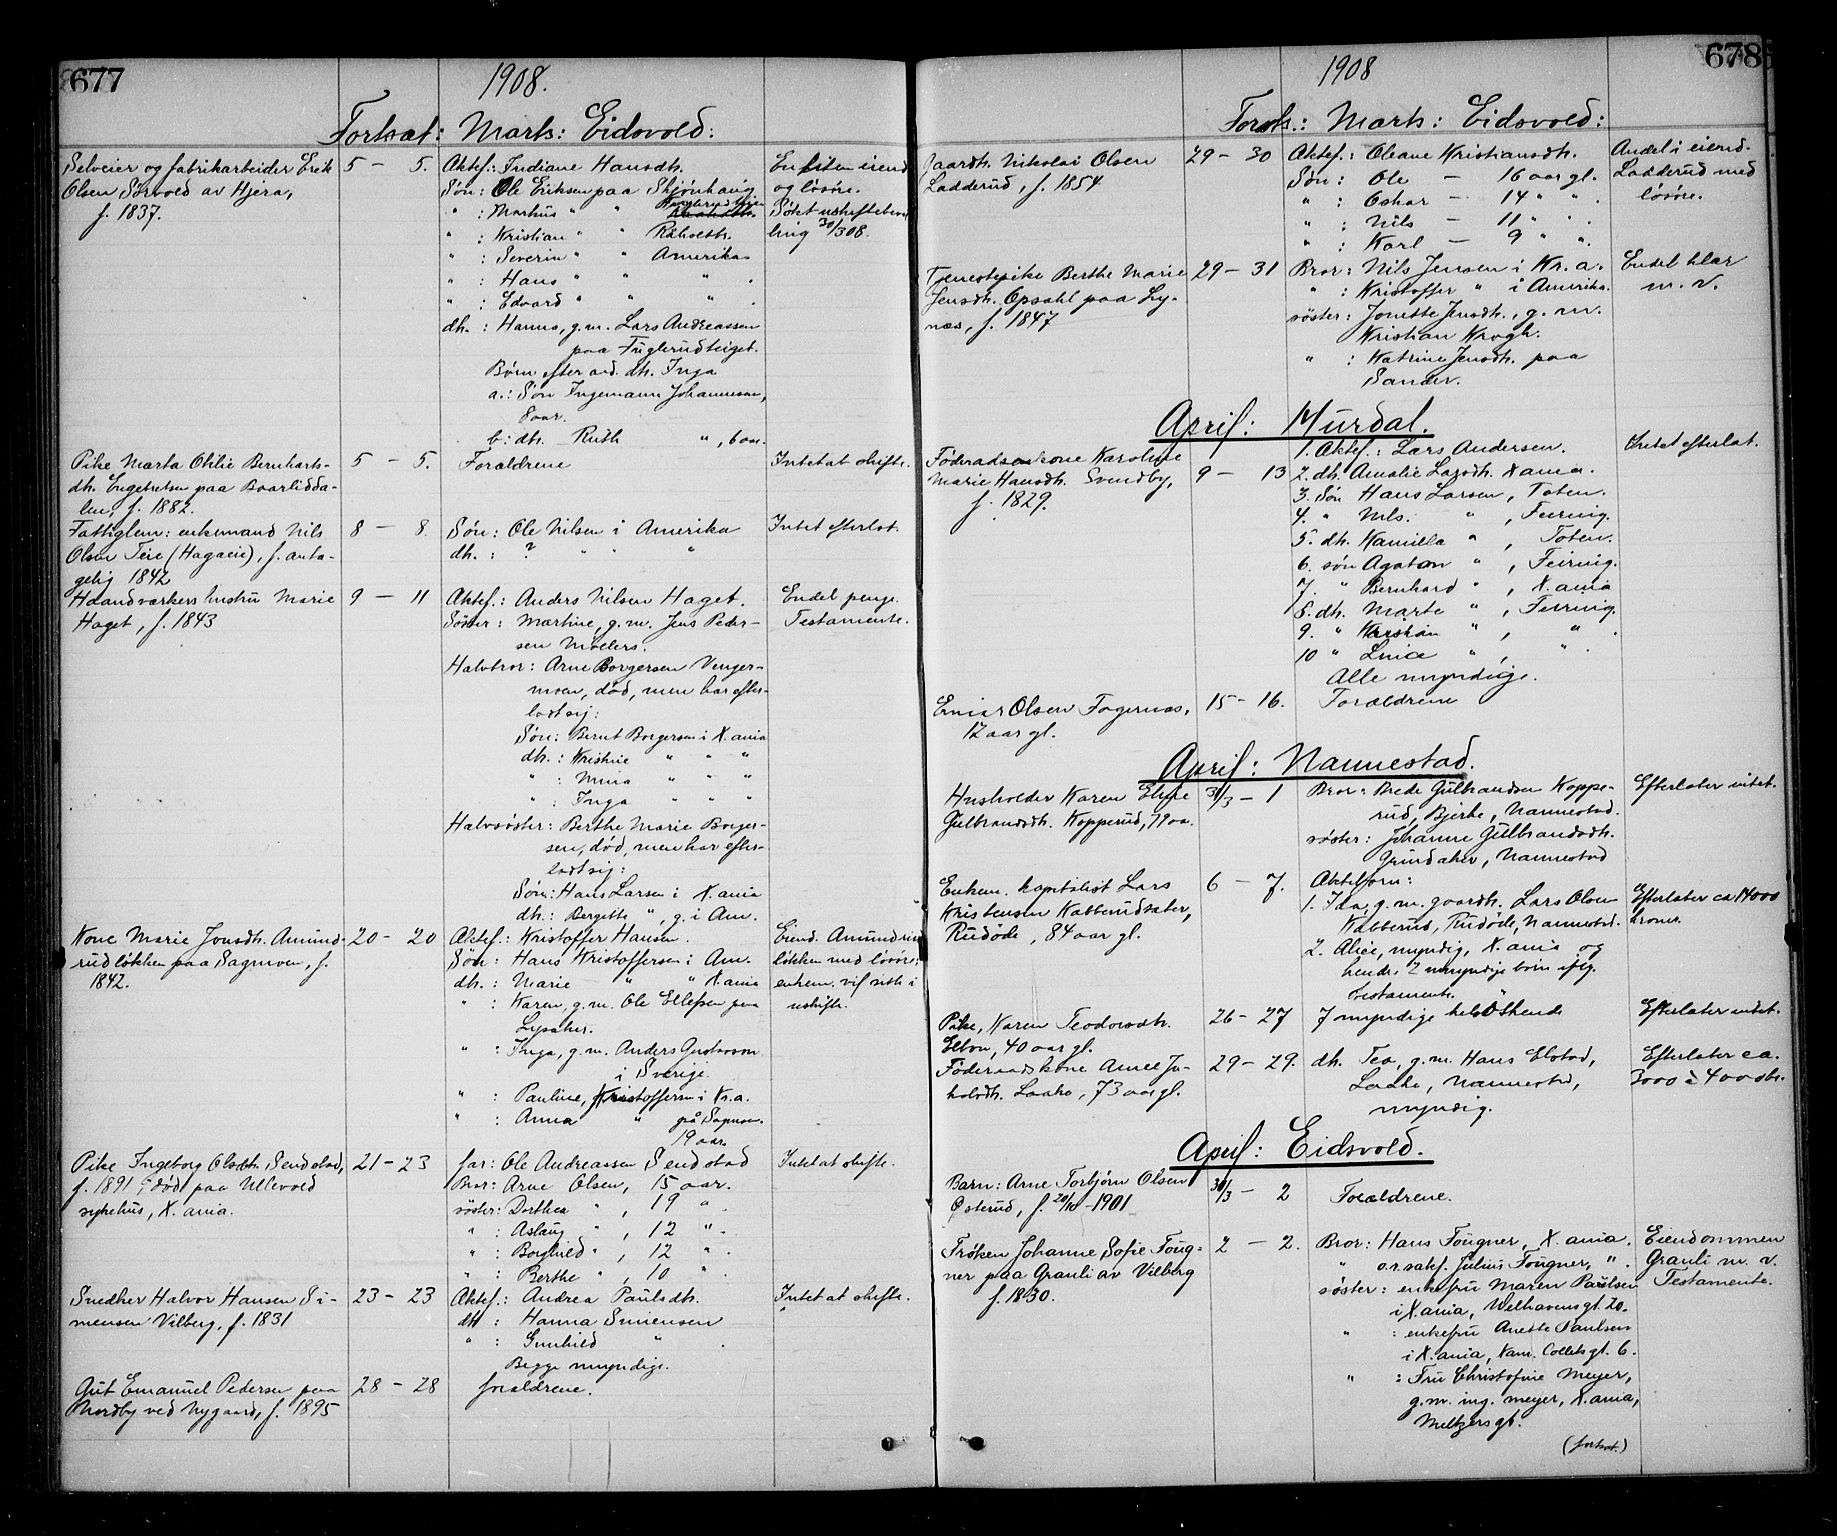 677
1908.
Fortsat: Marts: Eidsvold:
Selveier og fabrikarbeider Erik
Olsen Sørvold av Hjera,
f. 1837.
5 – 5.
Aktef.: Indiane Hansdh.
Søn: Ole Eriksen paa Skjønhaug
" : Markus " "
" : Kristian " " Råholth.
" : Severin " " Amerika
" : Hans " " "
" : Edvard " " "
dh. : Hanna, g.m. Lars Andreassen
paa Fuglerudteiget.
Børn efter avd. dh. Inga
a.: Søn Ingemann Johannesen,
8 aar.
b.: dh. Ruth " , 6 aar.
En liten eiend.
og løsøre.
Søkt uskiftebevil-
ling 30/3 08.
Pike Marta Otilie Bernharts-
dh. Engebretsen paa Baarlidda-
len, f. 1882.
5 – 5.
Forældrene
Intet at skifte.
Fattiglem: enkemand Nils
Olsen Teie (Hagaeie), f. anta-
gelig 1842
8 – 8.
Søn: Ole Nilsen i Amerika
dh. : ? " " "
Intet efterlat.
Haandværkers hustru Marie
Haget, f. 1843
9 – 11
Aktef.: Anders Nilsen Haget.
Søster: Martine, g.m. Jens Peder-
sen Moelers.
Halvbror: Arne Borgersen Venger-
moen, død, men har efter-
ladt sig:
Søn: Bernt Borgersen i X.ania
dh. : Kristine " " "
" : Mina " " "
" : Inga " " "
Halvsøster: Berthe Marie Borger-
sen, død, men har efter-
ladt sig:
Søn: Hans Larsen i X.ania
dh.: Bergette " , g. i Am.
Endel penge.
Testamente.
Kone Marie Jonsdh. Amund-
rudløkken paa Sagmoen, f.
1842.
20 – 20
Aktef.: Kristoffer Hansen.
Søn: Hans Kristoffersen i Am.
dh. : Marie " " X.ania
" : Karen, g.m. Ole Ellefsen paa
Lysaker.
" : Inga, g.m. Anders Gustavson
i Sverige.
" : Pauline, Kristoffersen i Kr.a.
" : Anna " på Sagmoen.
19 aar.
Eiend. Amundrud
løkken med løsøre;
enkem. vil sitte i
uskifte.
Pike Ingeborg Olsdh. Sendstad,
f. 1891, død paa Ullevold
sykehus, X.ania.
21 – 23
far: Ole Andreassen Sendstad
Bror: Arne Olsen, 15 aar.
søster: Dorthea " , 19 "
" : Aslaug " , 12 "
" : Borghild " , 12 "
" : Berthe " , 10 "
Intet at skifte.
Snedker Halvor Hansen Si-
mensen Vilberg, f. 1831
23 – 23
Aktef.: Andrea Paulsdh.
dh. : Hanna Simensen
" : Gunhild "
Begge myndige.
Intet at skifte.
Gut Emanuel Pedersen paa
Nordby ved Nygaard, f. 1895
28 – 28
forældrene.
678
1908
Forts.: Marts: Eidsvold:
Gaardb. Nikolai Olsen
Ladderud, f. 1854
29 – 30
Aktef.: Oleane Kristiansdh.
Søn: Ole – 16 aar gl.
" : Oskar – 14 " "
" : Nils – 11 " "
" : Karl – 9 " "
Andel i eiend.
Ladderud med
løsøre.
Tjenestepike Berthe Marie
Jensdh. Opsahl paa Ly-
næs, f. 1847
29 – 31
Bror: Nils Jensen i Kr.a.
" : Kristoffer " i Amerika.
søster: Jonette Jensdh., g.m.
Kristian Krogh.
" : Katrine Jensdh. paa
Sander.
Endel klær
m. v.
April: Hurdal.
Føderaadskone Karoline
Marie Hansdh. Svendby,
f. 1829.
9 – 13
1. Aktef.: Lars Andersen.
2. dh. Amalie Larsdh. X.ania.
3. Søn Hans Larsen, Toten.
4. " Nils. " , Feiring.
5. dh. Kamilla " , Toten.
6. søn Agaton " , Feiring.
7. " Bernhard " , X.ania
8. dh. Marte " , Feiring.
9. " Kristian " , "
10 " Lina " , "
Alle myndige.
Intet efterlat.
Einar Olsen Fagernæs,
12 aar gl.
15 – 16.
Forældrene
April: Nannestad.
Husholder Karen Eline
Gulbrandsdh. Kopperud, 79 aar
31/3 – 1
Bror: Brede Gulbrandsen Koppe-
rud, Bjerke, Nannestad.
søster: Johanne Gulbrandsdh.
Grindaker, Nannestad
Efterlater intet.
Enkem. kapitalist Lars
Kristensen Kabberudsæter,
Rudøde, 84 aar gl.
6 – 7.
Aktebørn:
1. Ida, g.m. gaardb. Lars Olsen
Kabberud, Rudøde, Nannestad.
2. Alice, myndig, X.ania og
hendes 2 umyndige børn iflg.
testamente.
Efterlater ca 14000
kroner.
Pike, Karen Teodorsdh.
Elton, 40 aar gl.
26 – 27
7 myndige helsøskende
Efterlater intet.
Føderaadskone Anne Ja-
kobsdh. Laake, 73 aar gl.
29 – 29.
dh. Tea, g.m. Hans Elstad,
Laake, Nannestad,
myndig.
Efterlater ca.
3000 à 4000 kr.
April: Eidsvold.
Barn: Arne Torbjørn Olsen
Østerud, f. 20/10 -1901
30/3 – 2
Forældrene.
Frøken Johanne Sofie Foug-
ner paa Grauli av Vilberg
f. 1830.
2 – 2.
Bror: Hans Fougner, X.ania.
" o.r.sakf. Julius Fougner, ".
søster: enkefru Maren Paulsen
i X.ania, Welhavensgt. 20.
" : enkefru Anette Paulsen
i X.ania, Kam. Colletsgt. 6.
" : Fru Christofine Meyer,
g.m. ing. Meyer, X.ania,
Meltzersgt.
Eiendommen
Grauli m. v.
Testamente.
(fortsat.)